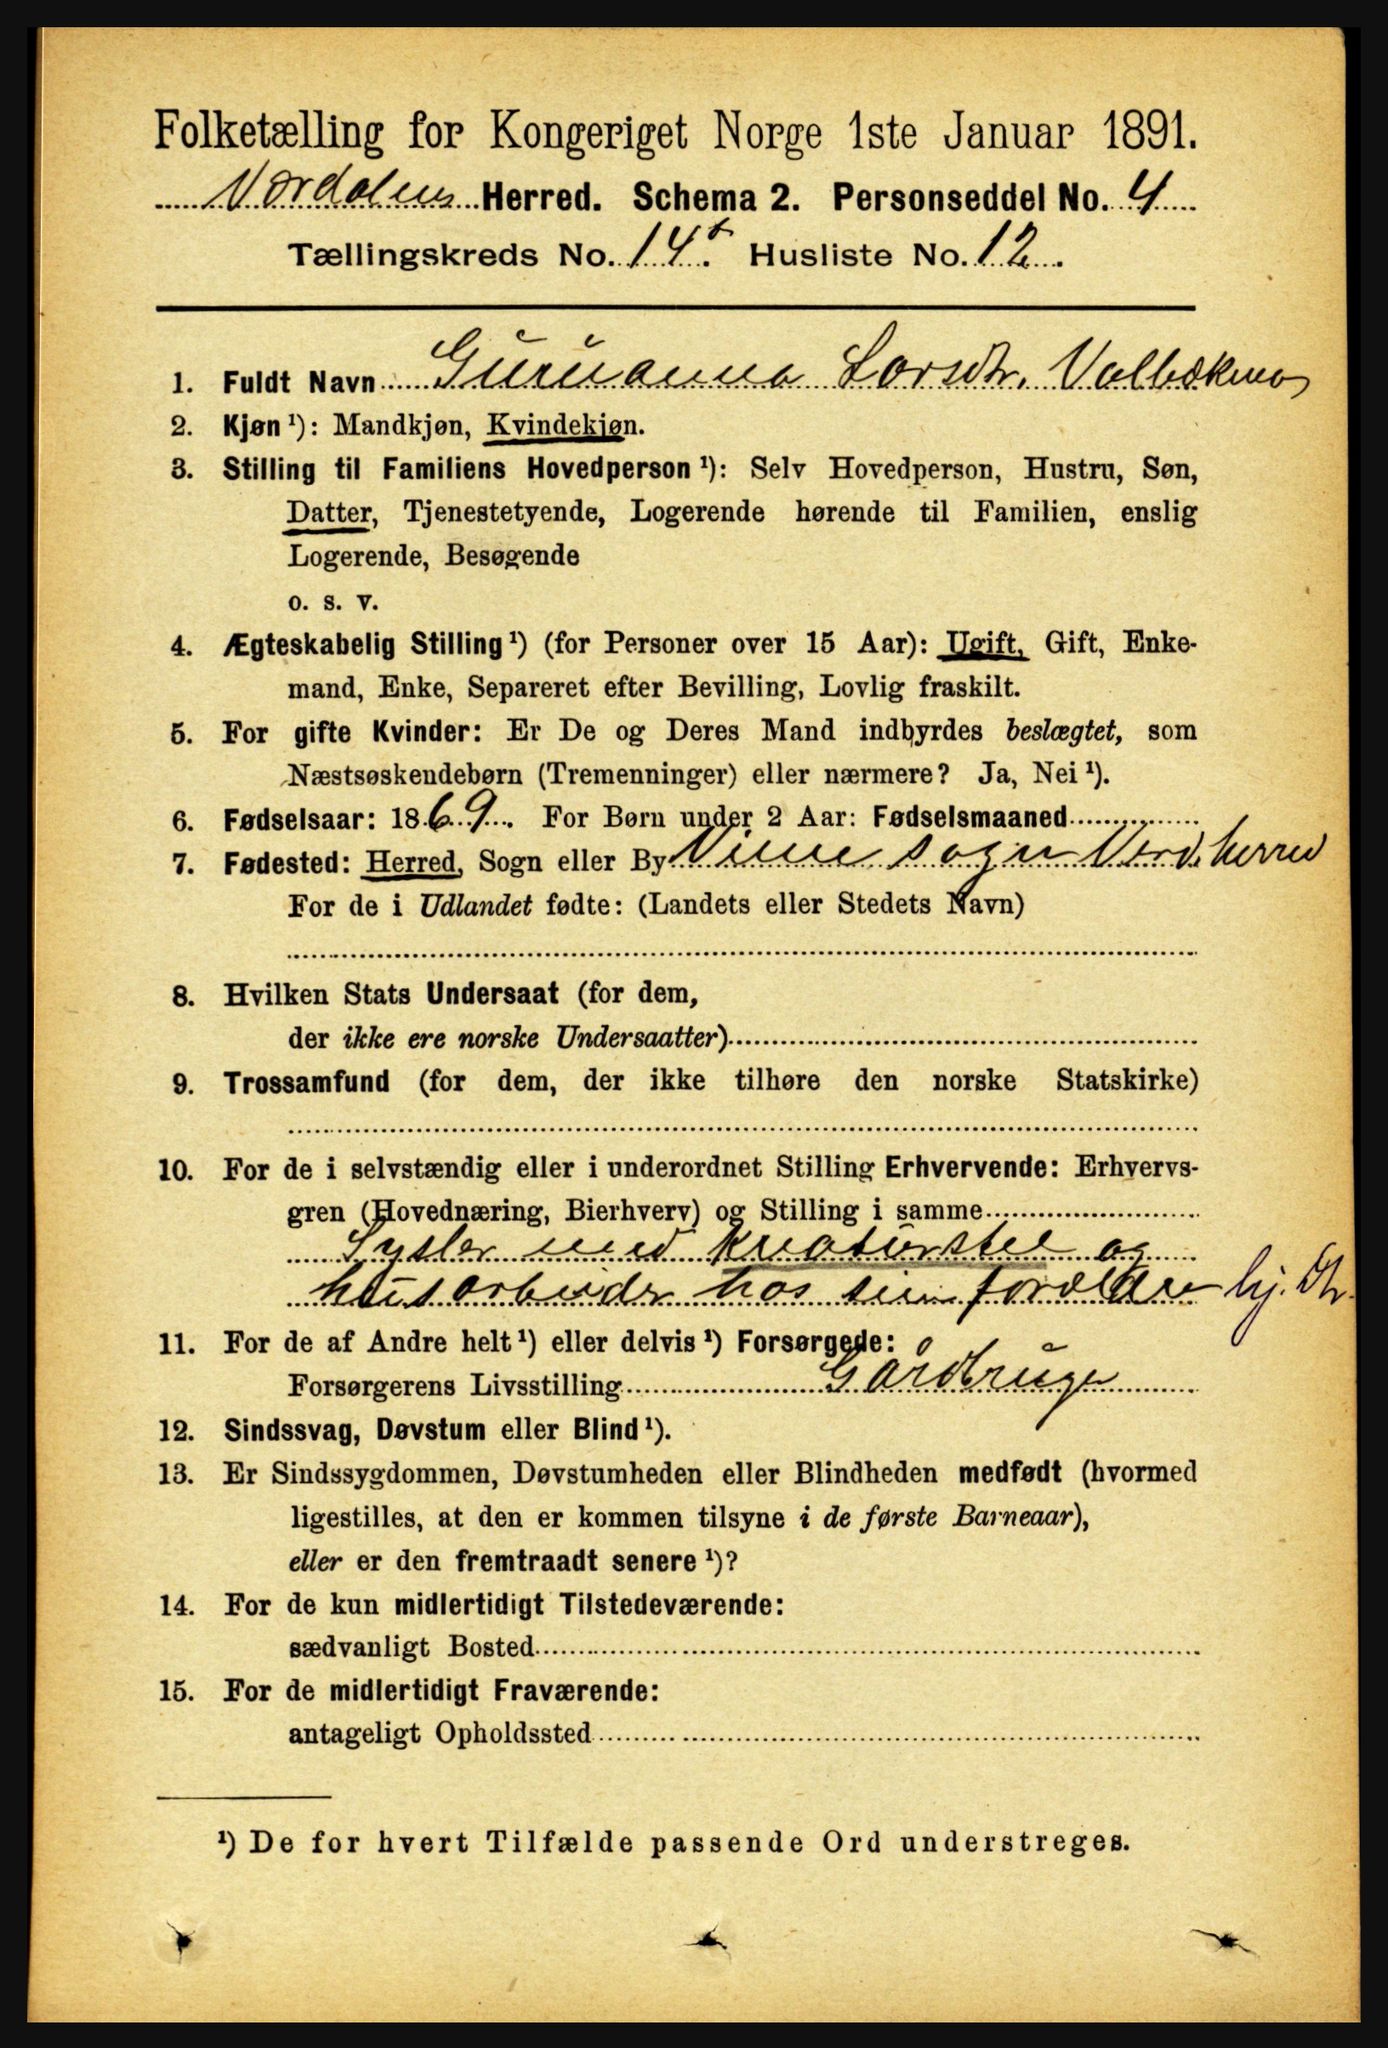 Folketælling for Kongeriget Norge 1ste Januar 1891.
Værdalens Herred. Schema 2. Personseddel No. 4
Tællingskreds No. 14. Husliste No. 12.
1. Fuldt Navn Guruanna Larsdtr. Valbækmo
2. Kjøn ¹): Mandkjøn, Kvindekjøn.
3. Stilling til Familiens Hovedperson ¹): Selv Hovedperson, Hustru, Søn,
Datter, Tjenestetyende, Logerende hørende til Familien, enslig
Logerende, Besøgende
o. s. v.
4. Ægteskabelig Stilling ¹) (for Personer over 15 Aar): Ugift, Gift, Enke-
mand, Enke, Separeret efter Bevilling, Lovlig fraskilt.
5. For gifte Kvinder: Er De og Deres Mand indbyrdes beslægtet, som
Næstsøskendebørn (Tremenninger) eller nærmere? Ja, Nei ¹).
6. Fødselsaar: 1869. For Børn under 2 Aar: Fødselsmaaned
7. Fødested: Herred, Sogn eller By Vinne sogn Verd. herred
For de i Udlandet fødte: (Landets eller Stedets Navn)
8. Hvilken Stats Undersaat (for dem,
der ikke ere norske Undersaatter)
9. Trossamfund (for dem, der ikke tilhøre den norske Statskirke)
10. For de i selvstændig eller i underordnet Stilling Erhvervende: Erhvervs-
gren (Hovednæring, Bierhverv) og Stilling i samme
Sysler med kreaturstel og
husarbeider hos sine forældre hj. Dtr.
11. For de af Andre helt ¹) eller delvis ¹) Forsørgede:
Forsørgerens Livsstilling Gårdbruger
12. Sindssvag, Døvstum eller Blind ¹).
13. Er Sindssygdommen, Døvstumheden eller Blindheden medfødt (hvormed
ligestilles, at den er kommen tilsyne i de første Barneaar),
eller er den fremtraadt senere ¹)?
14. For de kun midlertidigt Tilstedeværende:
sædvanligt Bosted
15. For de midlertidigt Fraværende:
antageligt Opholdssted
¹) De for hvert Tilfælde passende Ord understreges.